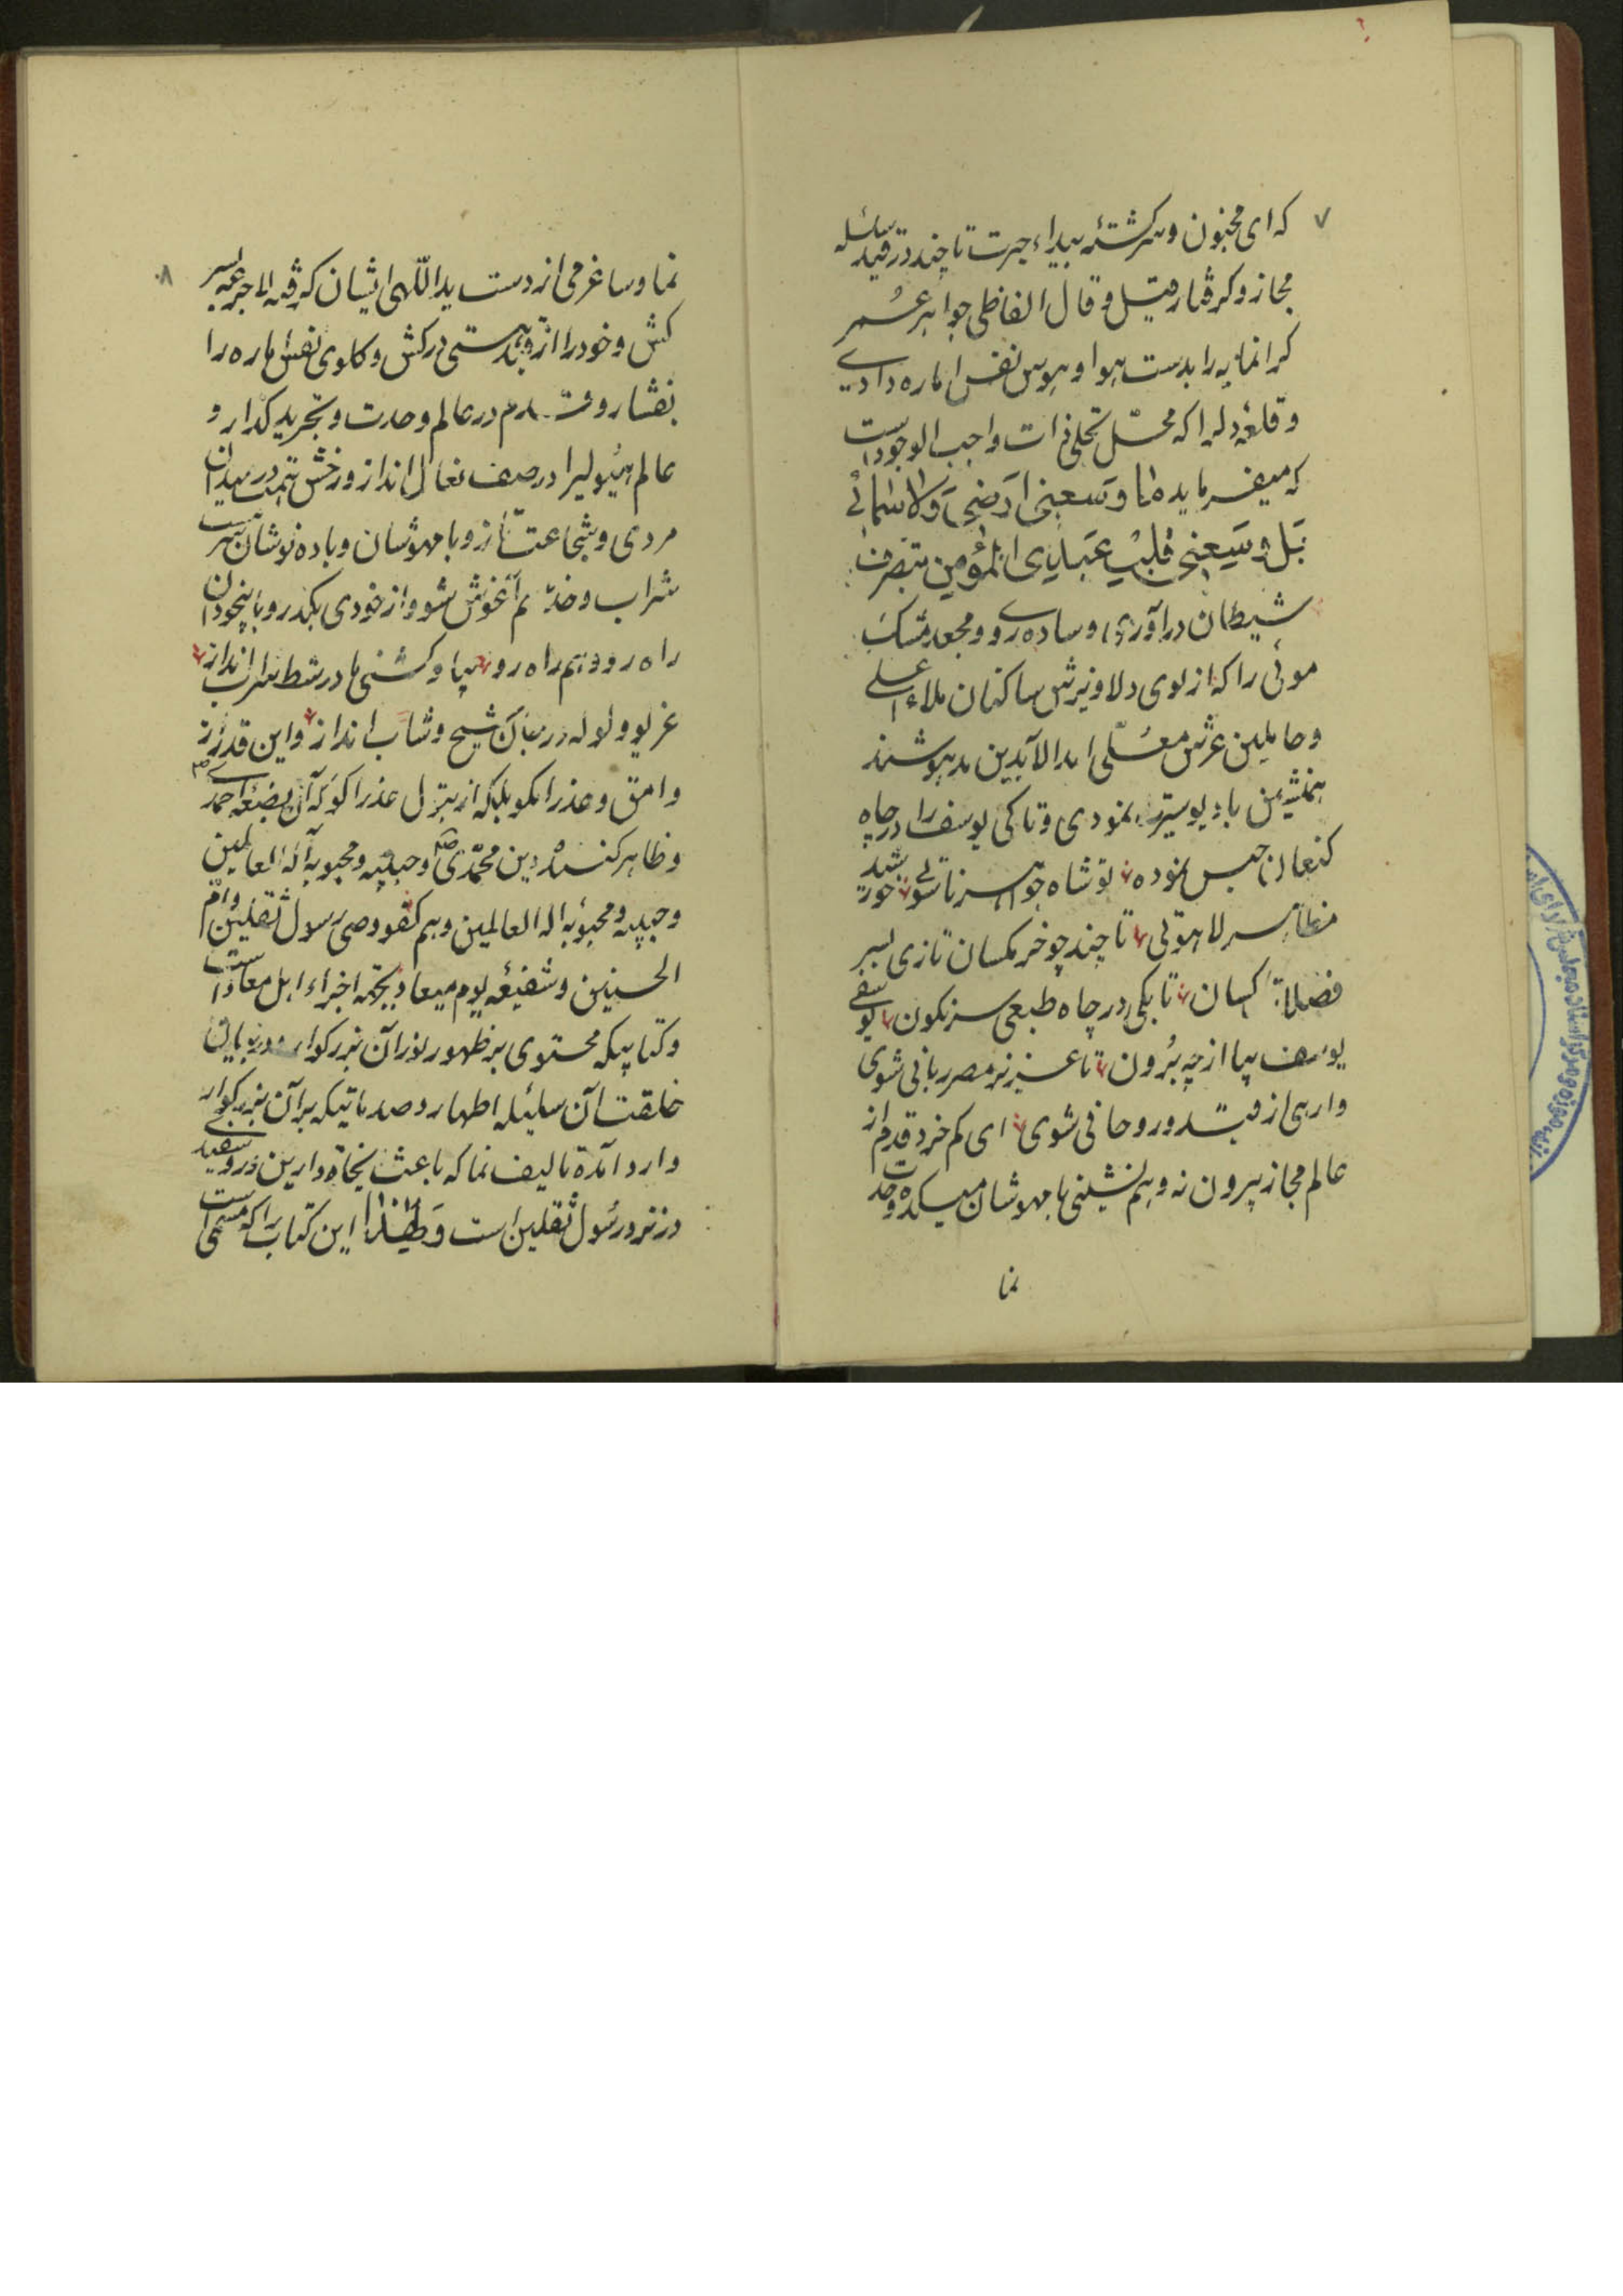 ۷
که ای مجنون و سرگشتهٔ بیداء حیرت تا چند در قید سلسله
مجاز و گرفتار قیل و قال الفاظی جواهر عمر
گرانمایه را بدست هوا و هوس نفس اماره دادی
و قلعهٔ دلرا که محل تجلی ذات واجب الوجود است
که میفرماید ما وَسعنی ارَضی وَلا سَمائی
بَل وَسَعنی قَلب عَبدی المُؤمِن بتصرف
شیطان درآوری و ساده روی و مجعد مشک
موئی را که از بوی دلاویزش ساکنان ملاء اعلی
و حاملین عرش معلّی ابد الآبدین مدهوشند
همنشین با دیو سیرت نمودی و تا کی یوسف را در چاه
کنعان حبس نموده تو شاه جواهر ناسوتی خورشید
مظاهر لاهوتی تا چند چو خرمگسان تازی بسر
فضلات کسان تا بکی در چاه طبعی سرنگون یوسفی
یوسف بیا از چه بُرون تا عزیز مصر ربانی شوی
وارهی از قید و روحانی شوی ای کم خرد قدم از
عالم مجاز بیرون نه و هم نشینی با مهوشان میکده وحدت
نما
۸
نما و ساغر می از دست ید اللّهی ایشان گرفته لاجرعه بسر
کش و خود را از قید هستی درکش و گلوی نفس اماره را
بفشار و قدم در عالم وحدت و تجرید گذار و
عالم هیولیرا در صف نعال انداز و رخش همت در میدان
مردی و شجاعت تاز و با مهوشان و باده نوشان مست
شراب و خدّ هم آغوش شو و از خودی بگذر و با بیخودان
راه رو و هم راه رو بیا و کشتی ما در شط شراب انداز
غریو و ولوله در جان شیخ و شاب انداز و این قدر از
وامق و عذرا مگو بلکه از بتول عذرا گو که آن بضعهٔ احمدی
و ظاهر کنندهٔ دین محمّدی و حبیبه و محبوبه آله العالمین
و حبیبه و محبوبه اله العالمین و هم کفو وصی رسول ثقلین و امّ
الحسنین و شفیعه یوم میعاد بجمه اخزاء اهل معاداست
و کتابیکه محتوی بر ظهور نور آن بزرگوار و در بیان
خلقت آن سلیله اطهار و صدماتیکه برآن بزرگوار
وارد آمده تالیف نما که باعث نجاة دارین و روسفیدی
در نزد رسُول ثقلین است وَ لِهٰذا این کتاب را که مسمی است